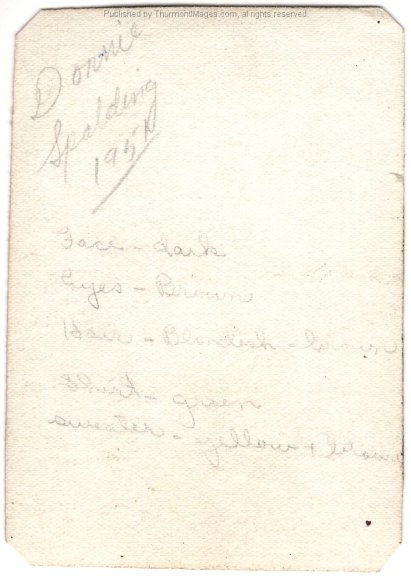 Published by ThurmontImages.com, all rights reserved.
Donnie
Spalding
Face - dark
Eyes - Brown
Hair - Blondish - brown
Shirt - green
sweater - yellow + brown